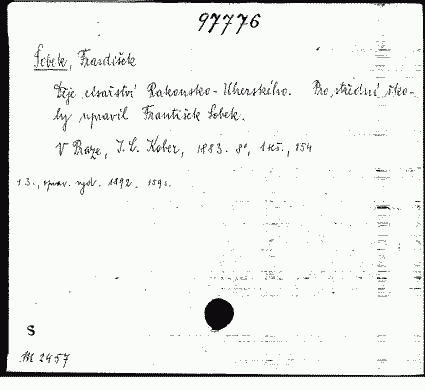 97776
Sobek, František
Děje císařství Rakousko-Uherského. Pro střední ško-
ly upravil František Sobek.
V Praze, I. L. Kober, 1883. 8°, 154
13., oprav. vyd. 1892. 159 s.
S
M 2457